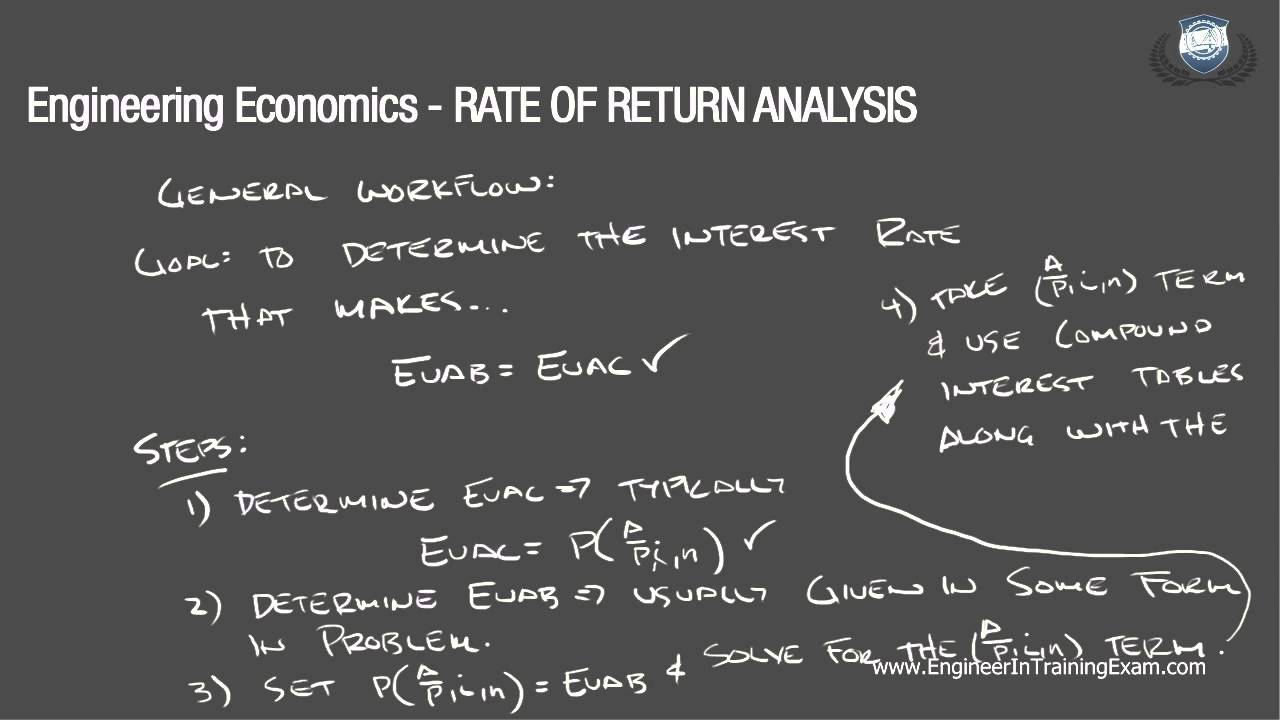 Engineering Economics - RATE OF RETURN ANALYSIS
GENERAL WORKFLOW:
GOAL: TO DETERMINE THE INTEREST RATE
THAT MAKES...
EUAB = EUAC ✓
STEPS:
1) DETERMINE EUAC => TYPICALLY
EUAC = P(A/P, i, n) ✓
2) DETERMINE EUAB => USUALLY GIVEN IN SOME FORM
IN PROBLEM.
3) SET P(A/P, i, n) = EUAB & SOLVE FOR THE (A/P, i, n) TERM.
4) TAKE (A/P, i, n) TERM
& USE COMPOUND
INTEREST TABLES
ALONG WITH THE
www.EngineerInTrainingExam.com